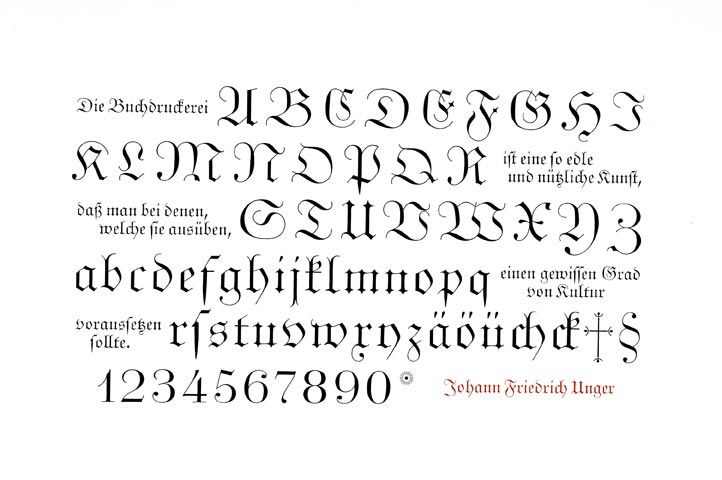 Die Buchdruckerei
ABCDEFGHI
KLMNOPQR
iſt eine ſo edle
und nützliche Kunſt,
daß man bei denen,
welche ſie ausüben,
STUVWXYZ
abcdefghijklmnopq
einen gewiſſen Grad
von Kultur
vorausſetzen
ſollte.
rſstuvwxyzäöüchck†§
1234567890
Johann Friedrich Unger